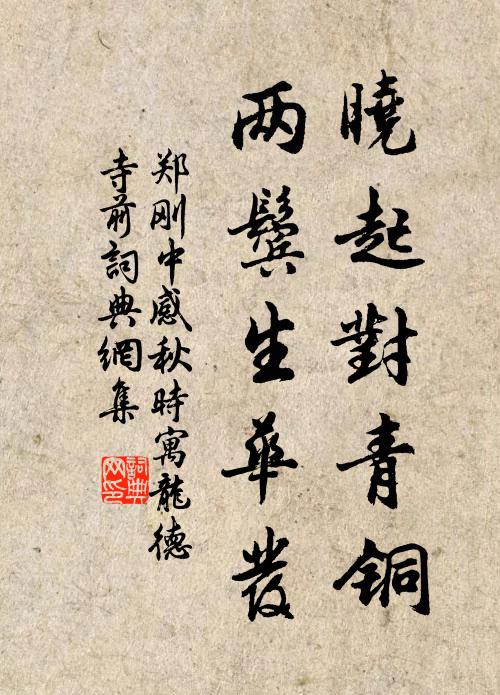 曉起對青铜
两鬓生華發
郑刚中感秋時寓龍德
寺前詞典網集
詞典网印